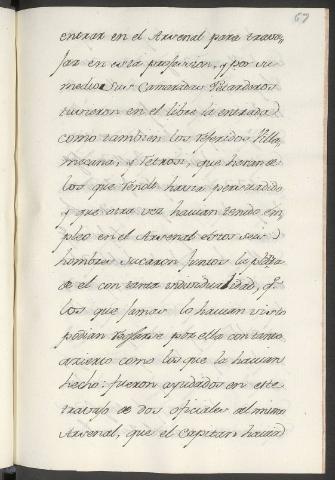 67
entrar en el Arsenal para trava-
jar en esta profession, y por su
medio seis Camaradas
tuvieron en el libre la entrada
como tambien los referidos Villa
mesana, y Petrosi, que heran de
los que havia persuadido
y que otra vez havian tenido em
pleo en el Arsenal estos seis
hombres sacaron juntos la
de el con tanta individualidad, q.e
los que jamas lo havian visto
podian por ella con tanto
acierto como los que la havian
hecho: fueron ayudados en este
travajo de dos oficiales del mismo
Arsenal, que el Capitan havia